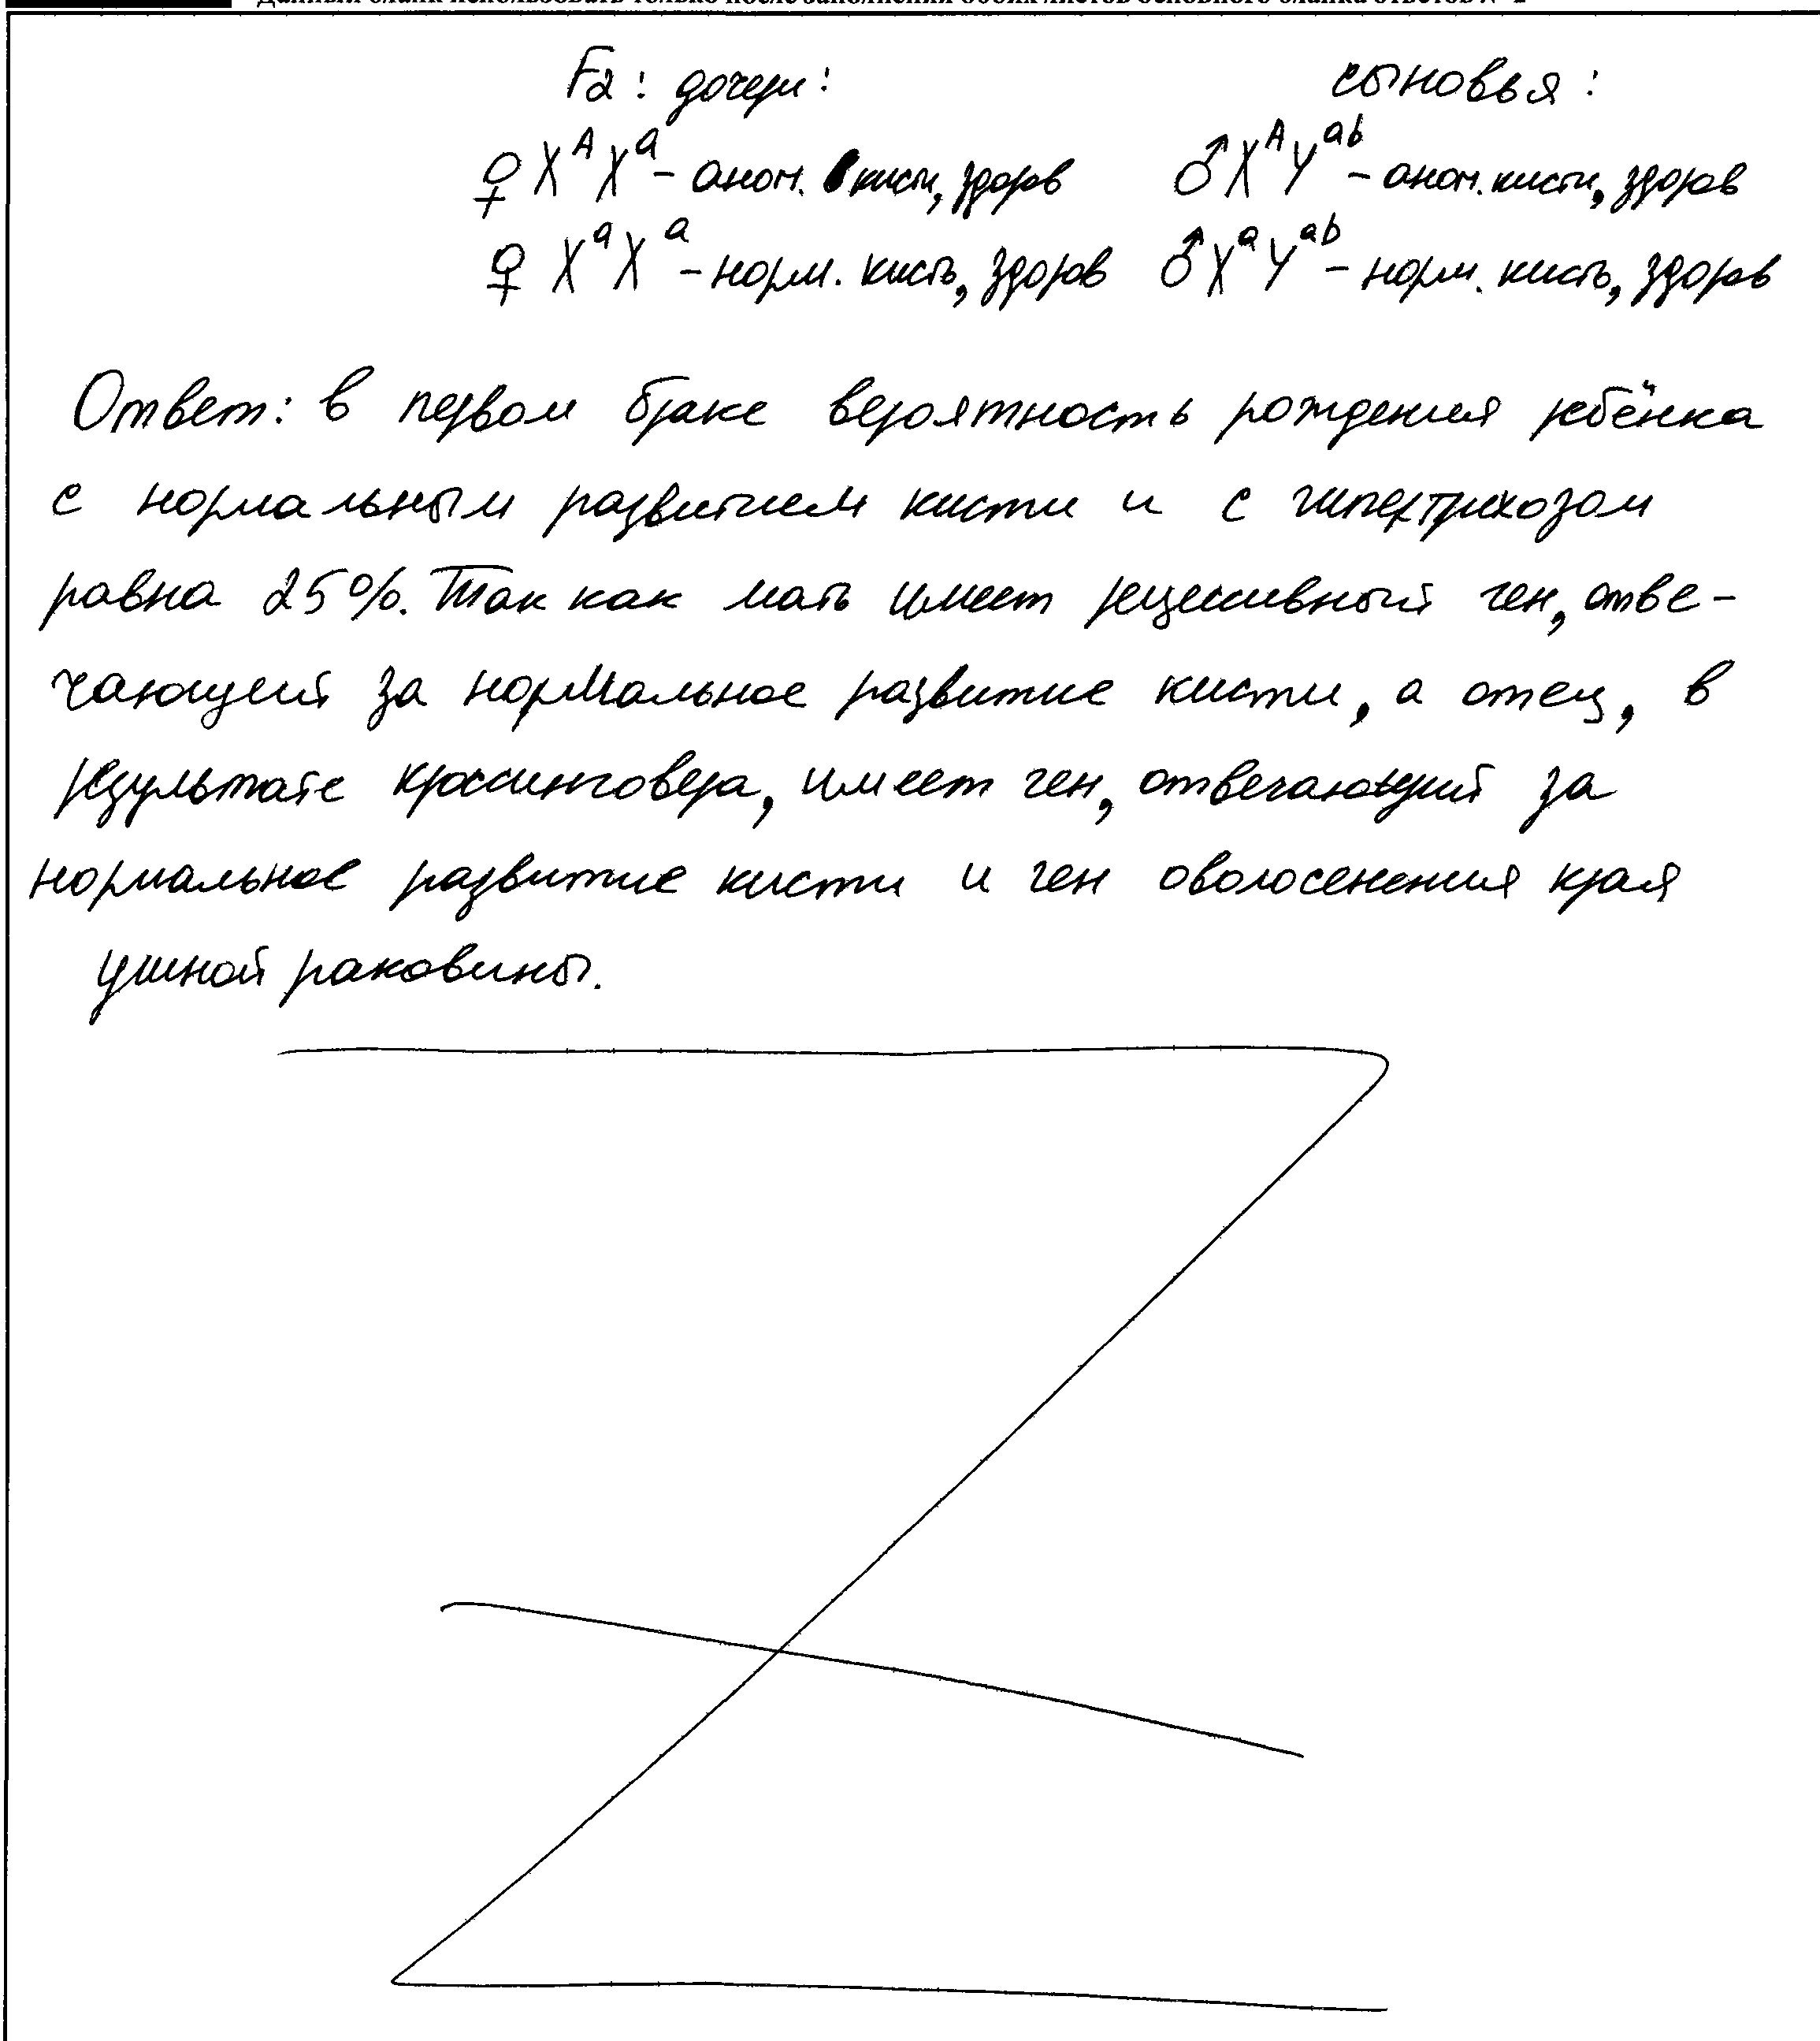 Данный бланк использовать только после заполнения обоих листов основного бланка ответов № 2
F2: дочери: сыновья:
♀ X^A X^a - аном. кисти, здоров ♂ X^A Y^ab - аном. кисти, здоров
♀ X^a X^a - норм. кисть, здоров ♂ X^a Y^ab - норм. кисть, здоров
Ответ: в первом браке вероятность рождения ребёнка
с нормальным развитием кисти и с гипертрихозом
равна 25%. Так как мать имеет рецессивный ген, отве-
чающий за нормальное развитие кисти, а отец, в
результате кроссинговера, имеет ген, отвечающий за
нормальное развитие кисти и ген оволосенения края
ушной раковины.